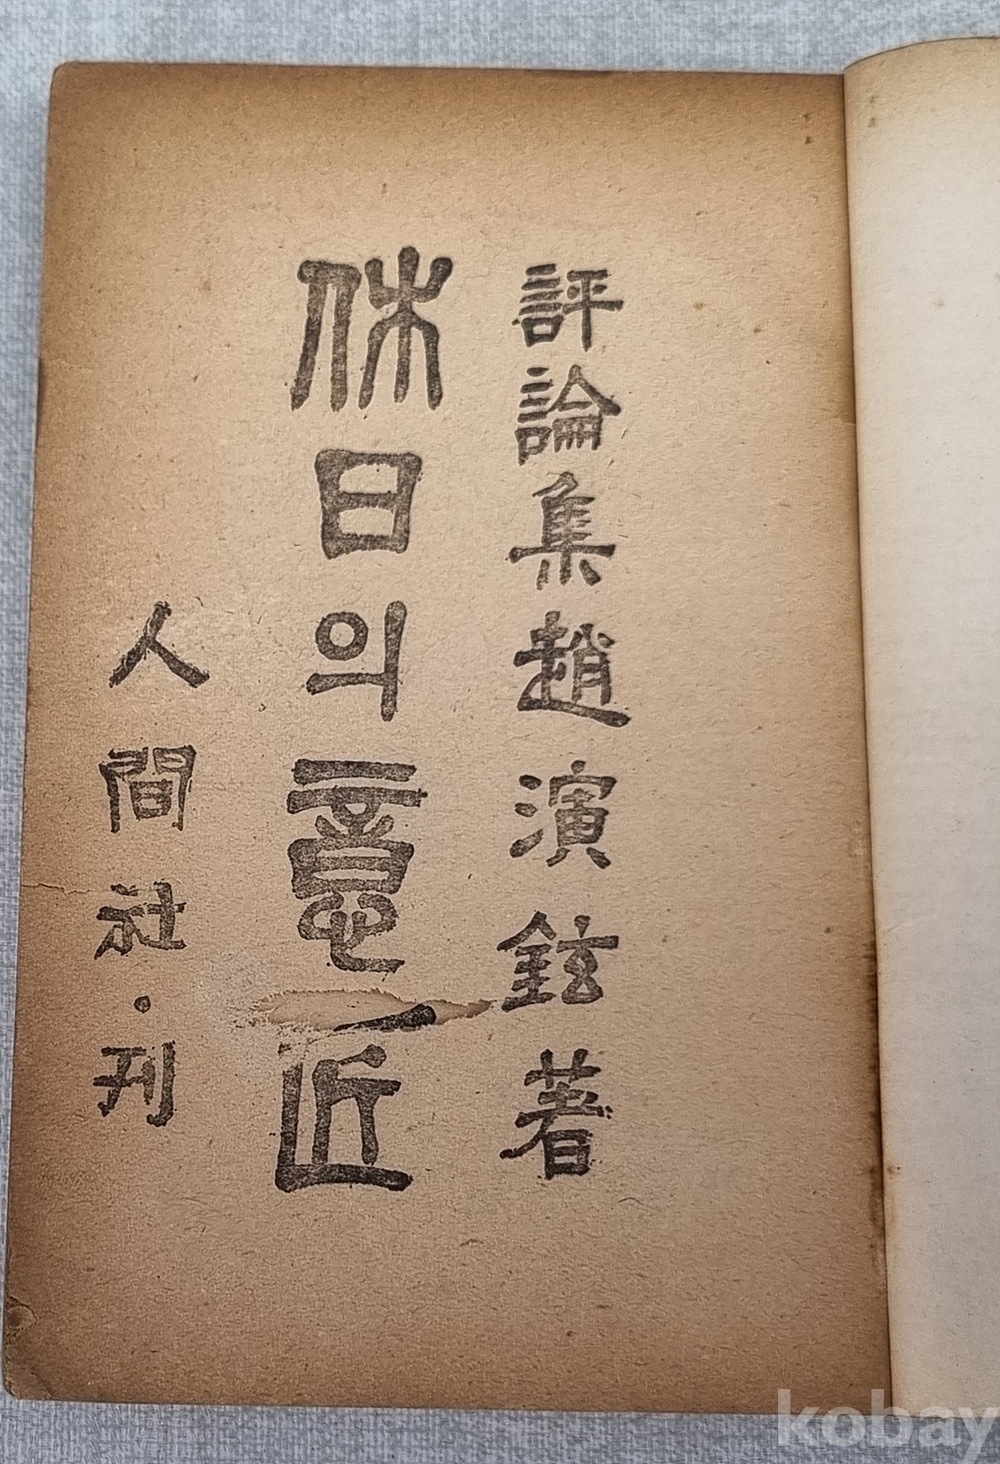 評論集 趙演鉉 著
休日의 意匠
人間社·刊
kobay